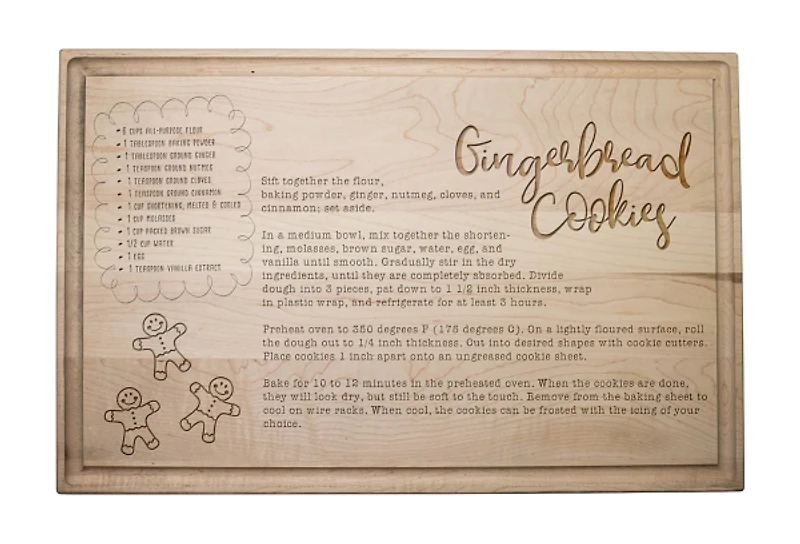 Gingerbread
Cookies
• 6 CUPS ALL-PURPOSE FLOUR
• 1 TABLESPOON BAKING POWDER
• 1 TABLESPOON GROUND GINGER
• 1 TEASPOON GROUND NUTMEG
• 1 TEASPOON GROUND CLOVES
• 1 TEASPOON GROUND CINNAMON
• 1 CUP SHORTENING, MELTED & COOLED
• 1 CUP MOLASSES
• 1 CUP PACKED BROWN SUGAR
• 1/2 CUP WATER
• 1 EGG
• 1 TEASPOON VANILLA EXTRACT
Sift together the flour,
baking powder, ginger, nutmeg, cloves, and
cinnamon; set aside.
In a medium bowl, mix together the shorten-
ing, molasses, brown sugar, water, egg, and
vanilla until smooth. Gradually stir in the dry
ingredients, until they are completely absorbed. Divide
dough into 3 pieces, pat down to 1 1/2 inch thickness, wrap
in plastic wrap, and refrigerate for at least 3 hours.
Preheat oven to 350 degrees F (175 degrees C). On a lightly floured surface, roll
the dough out to 1/4 inch thickness. Cut into desired shapes with cookie cutters.
Place cookies 1 inch apart onto an ungreased cookie sheet.
Bake for 10 to 12 minutes in the preheated oven. When the cookies are done,
they will look dry, but still be soft to the touch. Remove from the baking sheet to
cool on wire racks. When cool, the cookies can be frosted with the icing of your
choice.